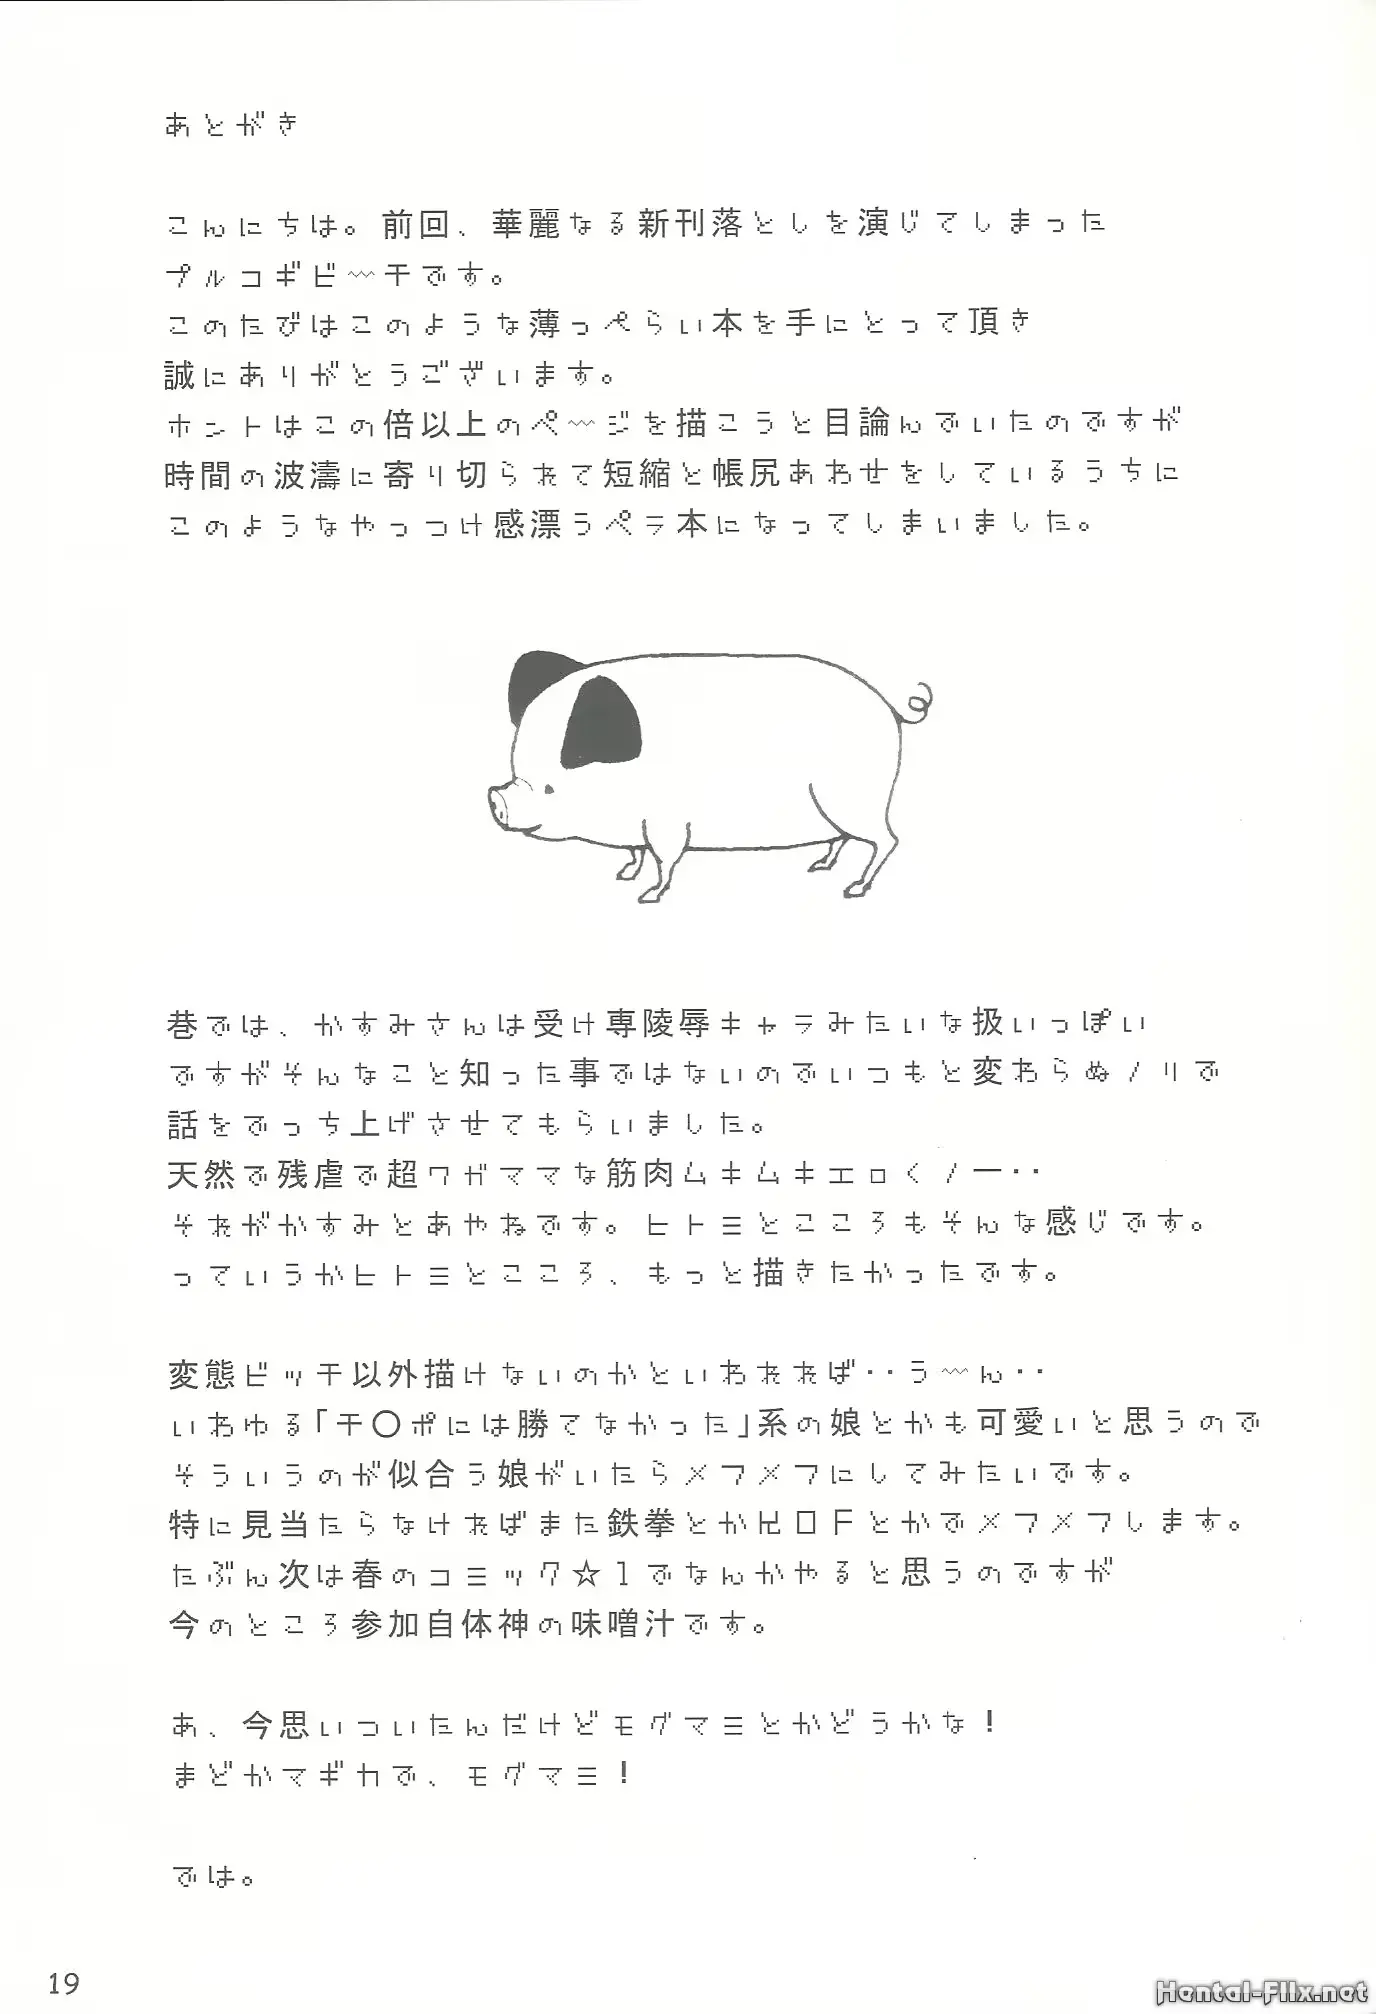 あとがき
こんにちは。前回、華麗なる新刊落としを演じてしまった
プルコギビ〰チです。
このたびはこのような薄っぺらい本を手にとって頂き
誠にありがとうございます。
ホントはこの倍以上のペ〰ジを描こうと目論んでいたのですが
時間の波濤に寄り切られて短縮と帳尻あわせをしているうちに
このようなやっつけ感漂うペラ本になってしまいました。
巷では、かすみさんは受け専陵辱キャラみたいな扱いっぽい
ですがそんなこと知った事ではないのでいつもと変わらぬノリで
話をでっち上げさせてもらいました。
天然で残虐で超ワガママな筋肉ムキムキエロくノ一‥
それがかすみとあやねです。ヒトミとこころもそんな感じです。
っていうかヒトミとこころ、もっと描きたかったです。
変態ビッチ以外描けないのかといわれれば‥う〰ん‥
いわゆる「チ〇ポには勝てなかった」系の娘とかも可愛いと思うので
そういうのが似合う娘がいたらメフメフにしてみたいです。
特に見当たらなければまた鉄拳とかKOFとかでメフメフします。
たぶん次は春のコミック☆1でなんかやると思うのですが
今のところ参加自体神の味噌汁です。
あ、今思いついたんだけどモグマミとかどうかな!
まどかマギカで、モグマミ!
では。
19
Hentai-Flix.net